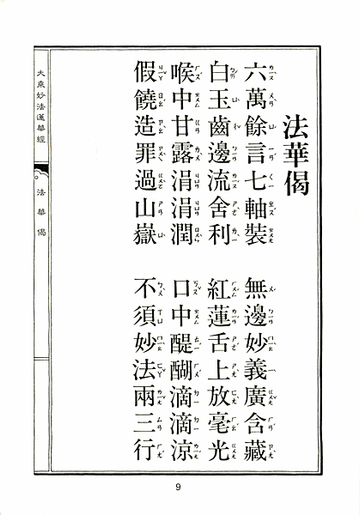 法華偈
六萬餘言七軸裝 無邊妙義廣含藏
白玉齒邊流舍利 紅蓮舌上放毫光
喉中甘露涓涓潤 口中醍醐滴滴涼
假饒造罪過山嶽 不須妙法兩三行
大乘妙法蓮華經
法華偈
9